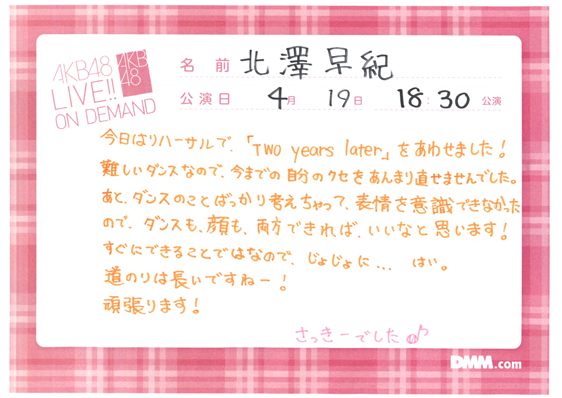 AKB48
LIVE!!
ON DEMAND
AKB
48
名前 北澤早紀
公演日 4月 19日 18:30 公演
今日はリハーサルで、「Two years later」をあわせました！
難しいダンスなので、今までの自分のクセをあんまり直せませんでした。
あと、ダンスのことばっかり考えちゃって、表情を意識できなかった
ので、ダンスも、顔も、両方できれば、いいなと思います！
すぐにできることではなので、じょじょに... はい。
道のりは長いですねー！
頑張ります！
さっきーでした
DMM.com